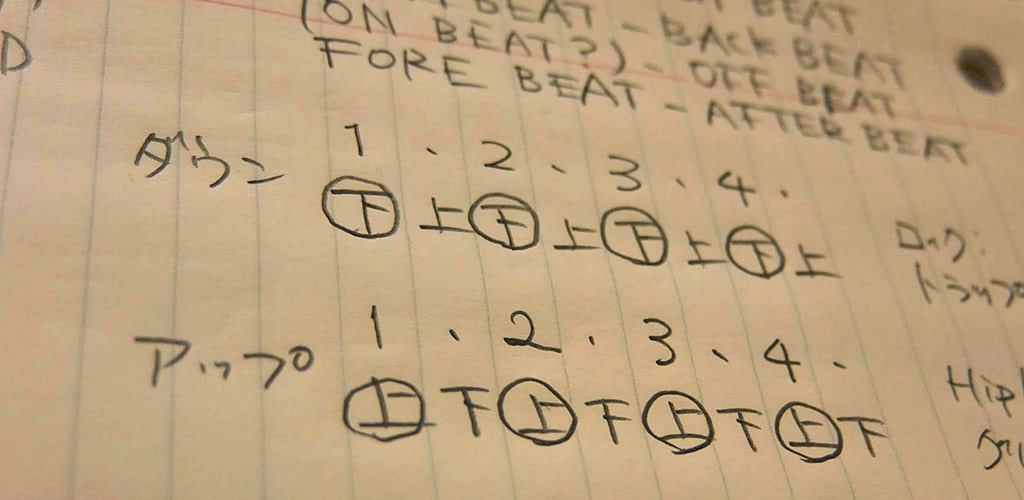 BEAT - BEAT
(ON BEAT?) - BACK BEAT
FORE BEAT - OFF BEAT
- AFTER BEAT
D
1 . 2 . 3 . 4 .
ダウン 下 上 下 上 下 上 下 上
ロック:
トラップ
1 . 2 . 3 . 4 .
アップ 上 下 上 下 上 下 上 下
Hip